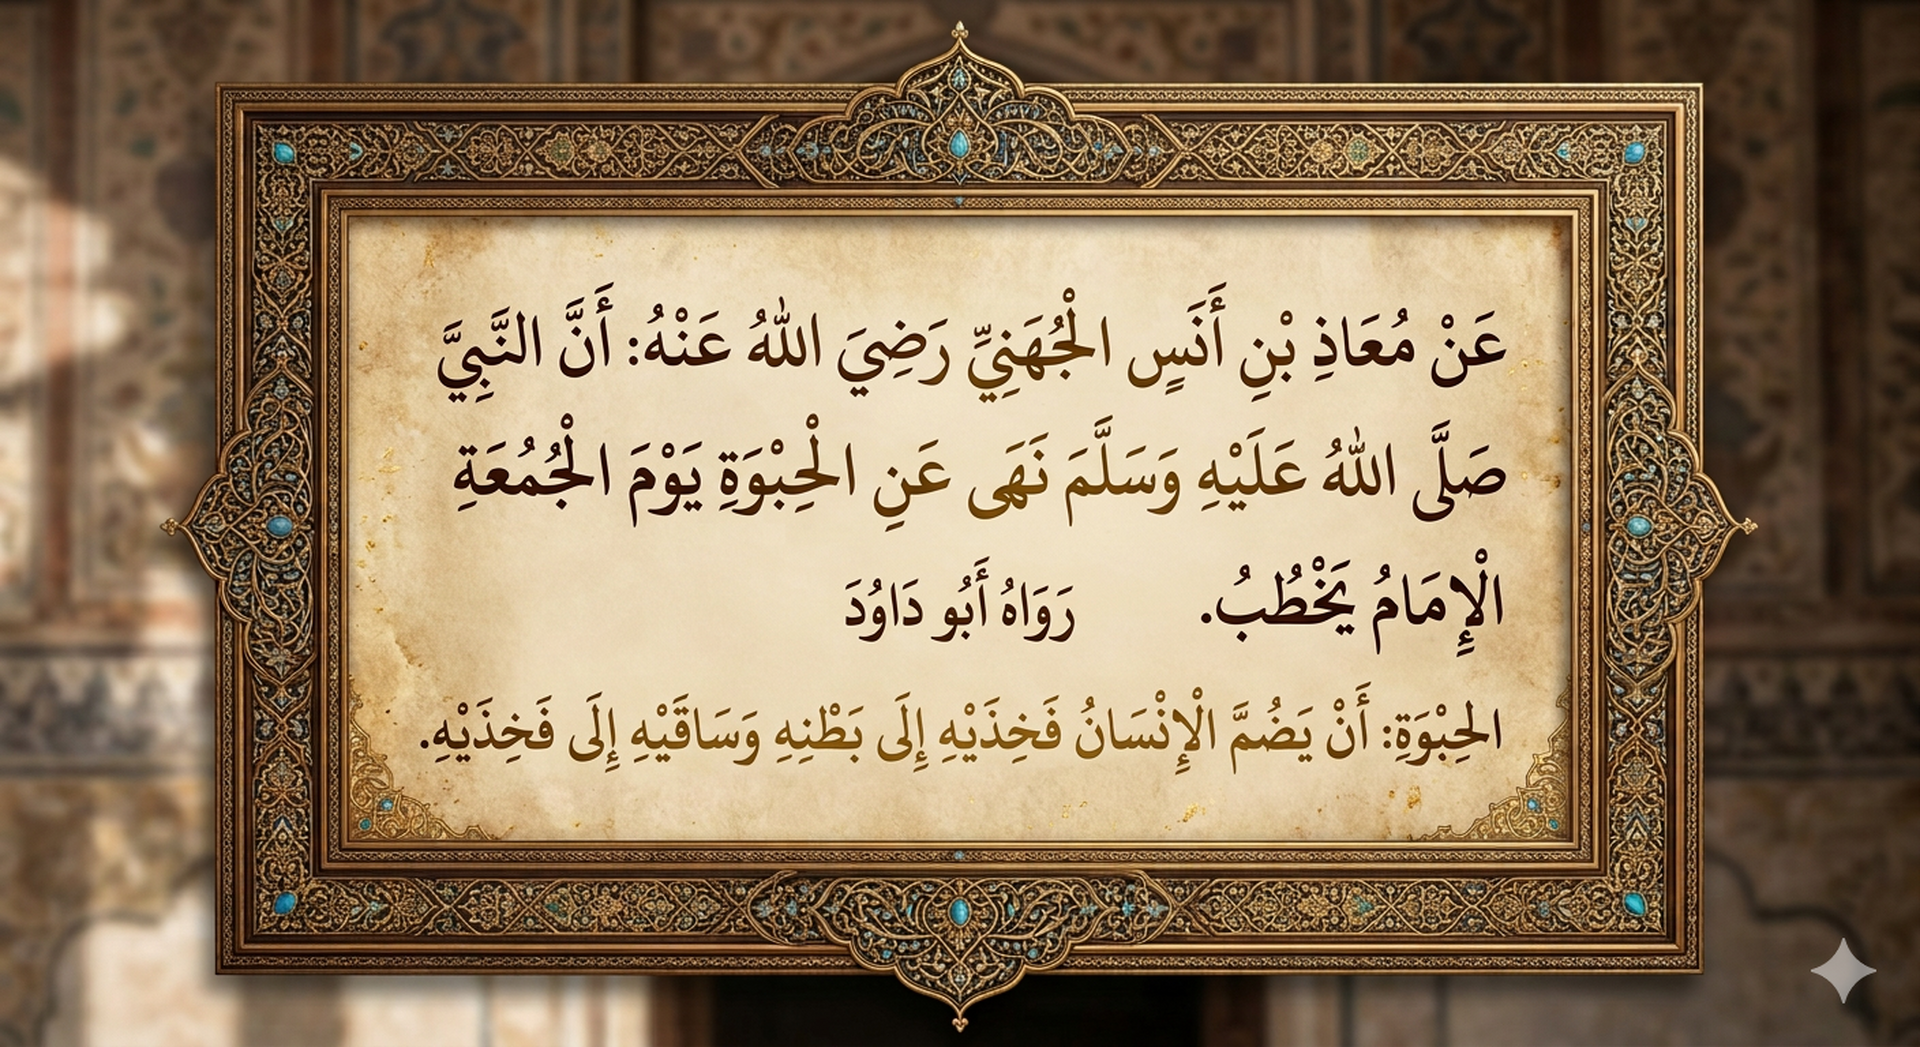 عَنْ مُعَاذِ بْنِ أَنَسٍ الْجُهَنِيِّ رَضِيَ اللهُ عَنْهُ: أَنَّ النَّبِيَّ
صَلَّى اللهُ عَلَيْهِ وَسَلَّمَ نَهَى عَنِ الْحِبْوَةِ يَوْمَ الْجُمُعَةِ
الْإِمَامُ يَخْطُبُ. رَوَاهُ أَبُو دَاوُدَ
الحِبْوَةِ: أَنْ يَضُمَّ الْإِنْسَانُ فَخِذَيْهِ إِلَى بَطْنِهِ وَسَاقَيْهِ إِلَى فَخِذَيْهِ.